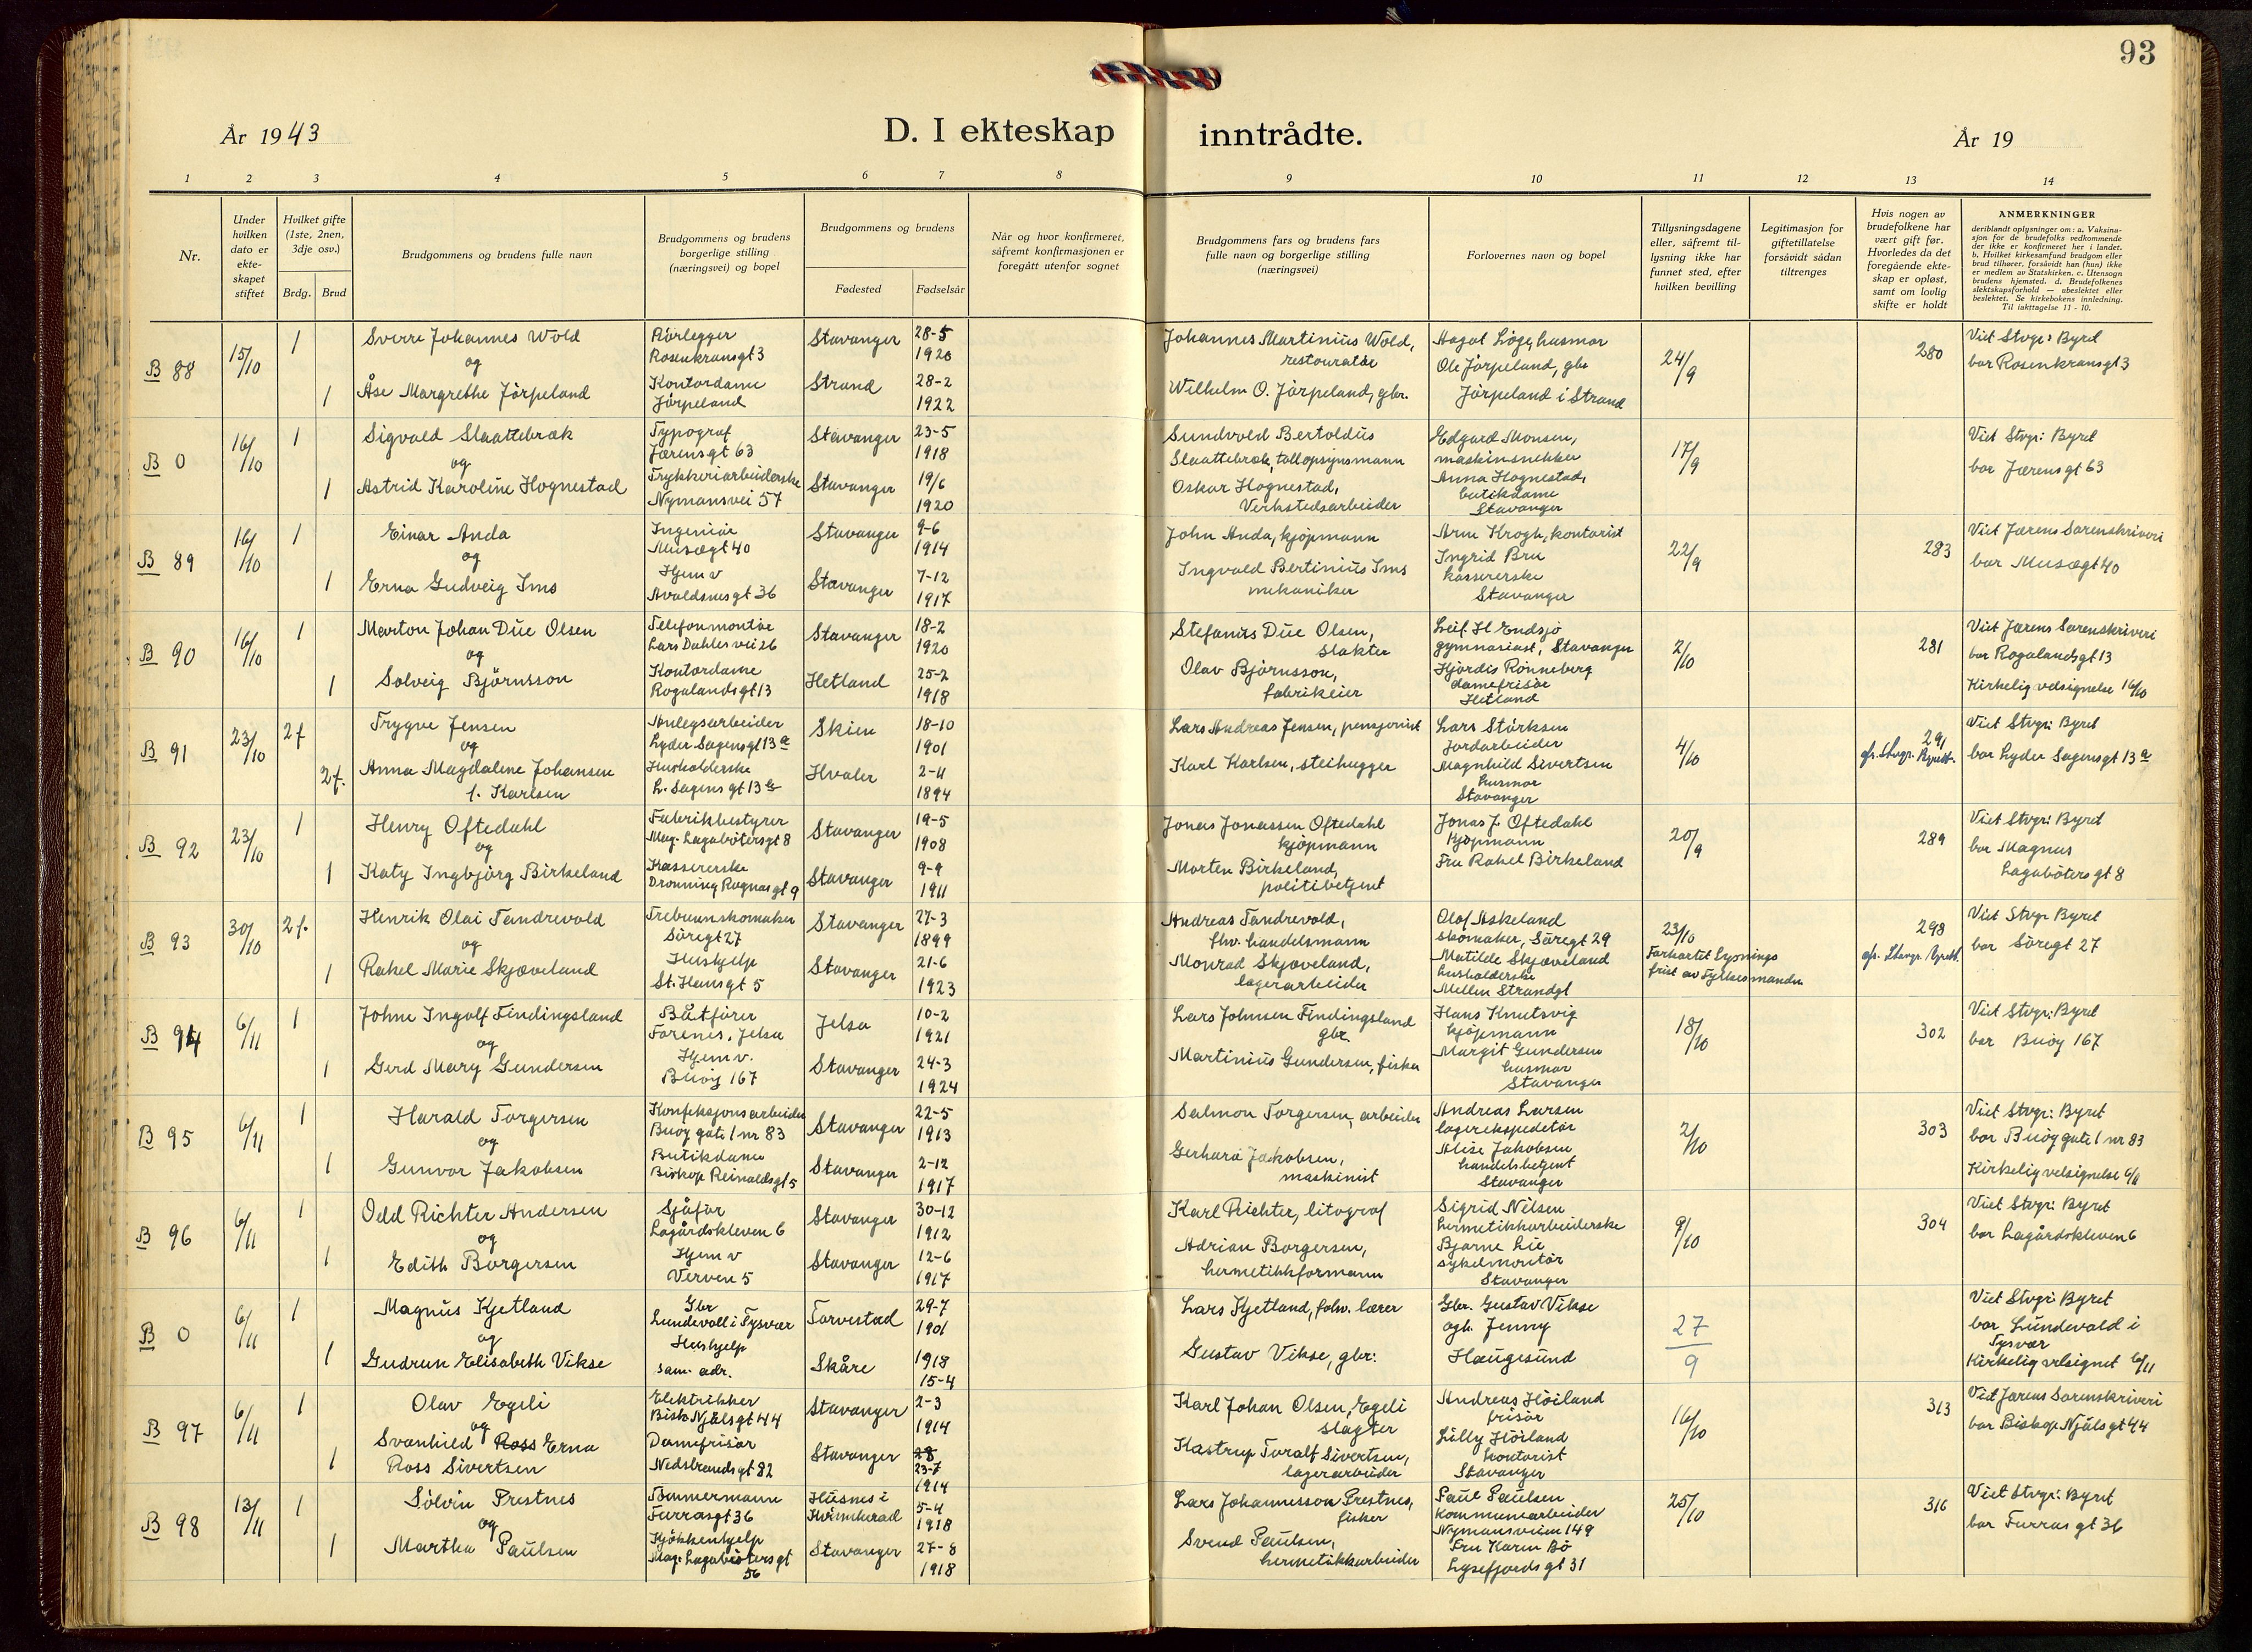 93
År 1943
D. I ekteskap inntrådte.
År 19
1 2 3 4 5 6 7 8 9 10 11 12 13 14
Nr.
Under hvilken dato er ekteskapet stiftet
Hvilket gifte (1ste, 2nen, 3dje osv.)
Brdg. Brud
Brudgommens og brudens fulle navn
Brudgommens og brudens borgerlige stilling (næringsvei) og bopel
Brudgommens og brudens
Fødested Fødselsår
Når og hvor konfirmeret, såfremt konfirmasjonen er foregått utenfor sognet
Brudgommens fars og brudens fars fulle navn og borgerlige stilling (næringsvei)
Forlovernes navn og bopel
Tillysningsdagene eller, såfremt tillysning ikke har funnet sted, efter hvilken bevilling
Legitimasjon for giftetillatelse forsåvidt sådan tiltrenges
Hvis nogen av brudefolkene har vært gift før. Hvorledes da det foregående ekteskap er opløst, samt om lovlig skifte er holdt
ANMERKNINGER
deriblandt oplysninger om: a. Vaksinasjon for de brudefolks vedkommende der ikke er konfirmeret her i landet. b. Hvilket kirkesamfund brudgom eller brud tilhører, forsåvidt han (hun) ikke er medlem av Statskirken. c. Utensogn brudens hjemsted. d. Brudefolkenes slektskapsforhold — ubeslektet eller beslektet. Se kirkebokens innledning. Til iakttagelse 11 - 10.
B 88 15/10 1 Sverre Johannes Wold Rörlegger Rosenkransgt 3 Stavanger 28-5 1920 Johannes Martinius Wold, restouratør
og
1 Åse Margrethe Jörpeland Kontordame Jörpeland Strand 28-2 1922 Wilhelm O. Jörpeland, gbr.
husmor Ole Jörpeland, gbr Jörpeland i Strand 24/9 280 Viet Stvgr: Byret bor Rosenkransgt 3
B 0 16/10 1 Sigvald Slaattebræk Typograf Jærensgt 63 Stavanger 23-5 1918 Sundvold Bertoldus Slaattebræk, tollopsynsmann
og
1 Astrid Karoline Hognestad Trykkeriarbeiderske Nymansvei 57 Stavanger 19/6 1920 Oskar Hognestad, Verkstedsarbeider
Edgard Monsen, maskinsnekker Anna Hognestad, butikdame Stavanger 17/9 Viet Stvgr: Byret bor Jærensgt 63
B 89 16/10 1 Einar Anda Ingeniør Musægt 40 Stavanger 9-6 1914 John Anda, kjøpmann
og
1 Erna Gudveig Ims Hjem v Avaldsnesgt 36 Stavanger 7-12 1917 Ingvald Bertinius Ims mekaniker
Arne Krogh, kontorist Ingrid Bru kassererske Stavanger 22/9 283 Viet Jærens Sorenskriveri bor Musægt 40
B 90 16/10 1 Marton Johan Düe Olsen Telefonmontør Lars Dahles vei 26 Stavanger 18-2 1920 Stefanus Düe Olsen, slakter
og
1 Solveig Björnsson Kontordame Rogalandsgt 13 Hetland 25-2 1918 Olav Björnsson, fabrikeier
Leif H Endsjø gymnasiast, Stavanger Hjördis Rönneberg damefrisør Hetland 2/10 281 Viet Jærens Sorenskriveri bor Rogalandsgt 13 Kirkelig velsignelse 16/10
B 91 23/10 2f Trygve Jensen Anlegsarbeider Lyder Sagensgt 13a Skien 18-10 1901 Lars Andreas Jensen, pensjonist
og
2f. Anna Magdalene Johansen f. Karlsen Husholderske L. Sagens gt 13a Hvaler 2-11 1894 Karl Karlsen, steihugger
Lars Stirksen Jordarbeider Magnhild Sivertsen husmor Stavanger 4/10 291 Viet Stvgr: Byret bor Lyder Sagensgt 13a
B 92 23/10 1 Henry Oftedahl Fabrikbestyrer Mag. Lagabötersgt 8 Stavanger 19-5 1908 Jonas Jonassen Oftedahl kjöpmann
og
1 Katy Ingbjörg Birkeland Kassererske Dronning Ragnasgt 9 Stavanger 9-9 1911 Morten Birkeland, politibetjent
Jonas J. Oftedahl Kjöpmann Fru Rakel Birkeland 20/9 289 Viet Stvgr: Byret bor Magnus Lagabötersgt 8
B 93 30/10 2f. Henrik Olai Tandrevold Trebunnskomaker Söregt 27 Stavanger 27-3 1899 Andreas Tandrevold, fhv. handelsmann
og
1 Rakel Marie Skjæveland Hushjelp St. Hansgt 5 Stavanger 21-6 1923 Monrad Skjæveland, lagerarbeider
Olaf Askeland skomaker, Söregt 29 Matilde Skjæveland husholderske Mellem Strandgt 23/10 Forkortet lysnings frist av Fylkesmanden 298 Viet Stvgr Byret bor Söregt 27
B 94 6/11 1 Johne Ingolf Findingsland Båtförer Forenes, Jelsa Jelsa 10-2 1921 Lars Johnsen Findingsland gbr.
og
1 Gerd Mary Gundersen Hjem v. Buöy 167 Stavanger 24-3 1924 Martinius Gundersen, fisker
Hans Knutsvig kjöpmann Margit Gundersen husmor Stavanger 18/10 302 Viet Stvgr: Byret bor Buöy 167
B 95 6/11 1 Harald Torgersen Konfeksjonsarbeider Buöy gate 1 nr 83 Stavanger 22-5 1913 Salmon Torgersen, arbeider
og
1 Gunvor Jakobsen Butikdame Biskop Reinaldsgt 5 Stavanger 2-12 1917 Gerhard Jakobsen, maskinist
Andreas Larsen lagerekspeditør Alise Jakobsen handelsbetjent Stavanger 2/10 303 Viet Stvgr: Byret bor Buöy gate 1 nr 83 Kirkelig velsignelse 6/11
B 96 6/11 1 Odd Richter Andersen Sjåfør Lagårdskleven 6 Stavanger 30-12 1912 Karl Richter, litograf
og
1 Edith Borgersen Hjem v Verven 5 Stavanger 12-6 1917 Adrian Borgersen, hermetikkformann
Sigrid Nilsen hermetikkarbeiderske Bjarne Lie sykelmontör Stavanger 9/10 304 Viet Stvgr: Byret bor Lagårdskleven 6
B 0 6/11 1 Magnus Kjetland Gbr Lundevoll i Tysvær Torvestad 29-7 1901 Lars Kjetland, forhv. lærer
og
1 Gudrun Elisabeth Vikse Hushjelp sam. adr. Skåre 1918 15-4 Gustav Vikse, gbr:
Gbr. Gustav Vikse ogh. Jenny Haugesund 27/9 Viet Stvgr Byret bor Lundevald i Tysvær Kirkelig velsignet 6/11
B 97 6/11 1 Olav Egeli Elektrikker Bisk. Njålsgt 44 Stavanger 2-3 1914 Karl Johan Olsen, Egeli slagter
og
1 Svanhild Ross Erna Ross Sivertsen Damefrisør Nedstrandsgt 82 Stavanger 28 23-7 1914 Kastrup Toralf Sivertsen, lagerarbeider
Andreas Höiland frisör Lilly Höiland kontorist Stavanger 16/10 313 Viet Jærens Sorenskriveri bor Biskop Njålsgt 44
B 98 13/11 1 Sölvin Prestnes Tömmermann Furrasgt 36 Husnes i Kvinnherad 5-4 1918 Lars Johannesson Prestnes, fisker
og
1 Martha Paulsen Kjökkenhjelp Mag: Lagabötersgt 56 Stavanger 27-8 1918 Svend Paulsen, hermetikkarbeider
Paul Paulsen Kommunearbeider Nymansveien 149 Fru Karen Bö Lysefjordsgt 31 25/10 316 Viet Stvgr: Byret bor Furrasgt 36